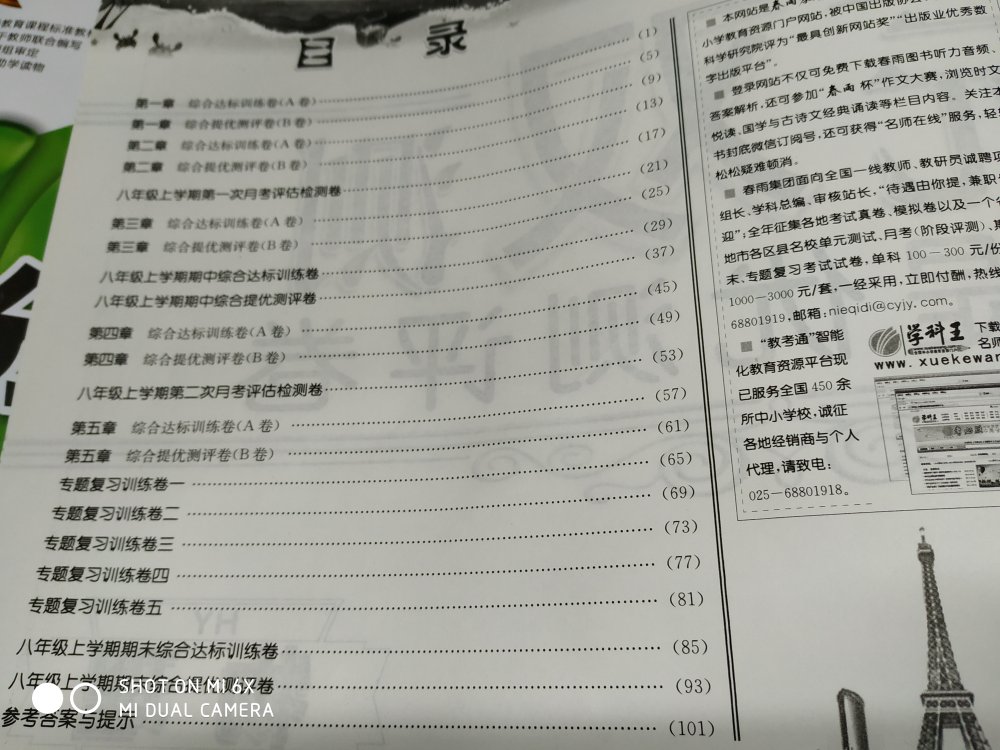 教育课程标准教材
干教师联合编写
组审定
助学读物
目 录
第一章 综合达标训练卷(A卷) (1)
第一章 综合提优测评卷(B卷) (5)
第二章 综合达标训练卷(A卷) (9)
第二章 综合提优测评卷(B卷) (13)
八年级上学期第一次月考评估检测卷 (17)
第三章 综合达标训练卷(A卷) (21)
第三章 综合提优测评卷(B卷) (25)
八年级上学期期中综合达标训练卷 (29)
八年级上学期期中综合提优测评卷 (37)
第四章 综合达标训练卷(A卷) (45)
第四章 综合提优测评卷(B卷) (49)
八年级上学期第二次月考评估检测卷 (53)
第五章 综合达标训练卷(A卷) (57)
第五章 综合提优测评卷(B卷) (61)
专题复习训练卷一 (65)
专题复习训练卷二 (69)
专题复习训练卷三 (73)
专题复习训练卷四 (77)
专题复习训练卷五 (81)
八年级上学期期末综合达标训练卷 (85)
八年级上学期期末综合提优测评卷 (93)
参考答案与提示 (101)
■ 本网站是春雨
小学教育资源门户网站,被中国出版协会
科学研究院评为“最具创新网站奖”“出版业优秀数
字出版平台”。
■ 登录网站不仅可免费下载春雨图书听力音频、
答案解析,还可参加“春雨杯”作文大赛,浏览时文
悦读、国学与古诗文经典诵读等栏目内容。关注本
书封底微信订阅号,还可获得“名师在线”服务,轻
松松疑难顿消。
■ 春雨集团面向全国一线教师、教研员诚聘项
组长、学科总编、审核站长,“待遇由你提,兼职
迎”;全年征集各地考试真卷、模拟卷以及一个
地市各区县名校单元测试、月考(阶段评测)、期
末、专题复习考试试卷,单科100-300元/份
1000-3000元/套,一经采用,立即付酬,热线
68801919,邮箱:nieqidi@cyjy.com。
■ “教考通”智能
化教育资源平台现
已服务全国450余
所中小学校,诚征
各地经销商与个人
代理,请致电:
025-68801918。
学科王
下载
名师
www.xuekewan
SHOT ON MI 6X
MI DUAL CAMERA